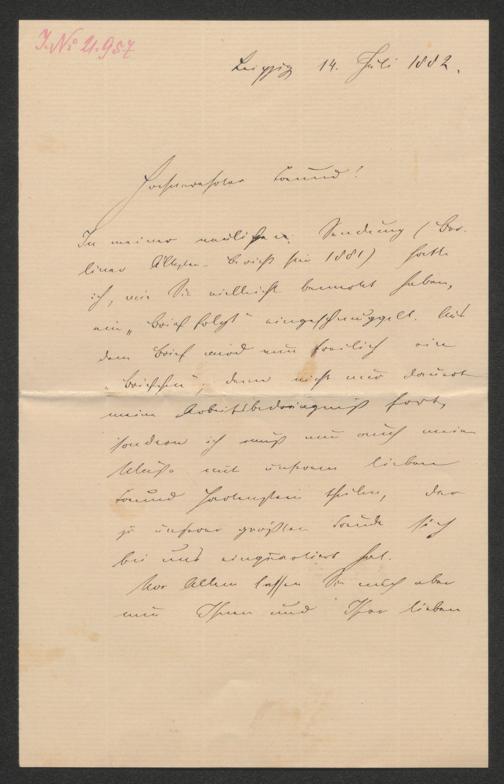 J. No 21.957
Leipzig 14. Juli 1882.
Hochverehrter Freund!
In meiner neulichen Sendung (Ber-
liner Bericht für 1881) hatte
ich, wie Sie vielleicht bemerkt haben,
ein „Brief folgt" eingeschmuggelt. Aus
dem Brief wird nun freilich ein
„Briefchen", denn nicht nur dauert
meine Arbeitsbedrängniß fort,
sondern ich muß nun auch meine
Muße mit unserem lieben
Freund theilen, der
zu unserer größten Freude sich
bei uns einquartiert hat.
Vor Allem lassen Sie mich aber
nun Ihnen und Ihrer lieben